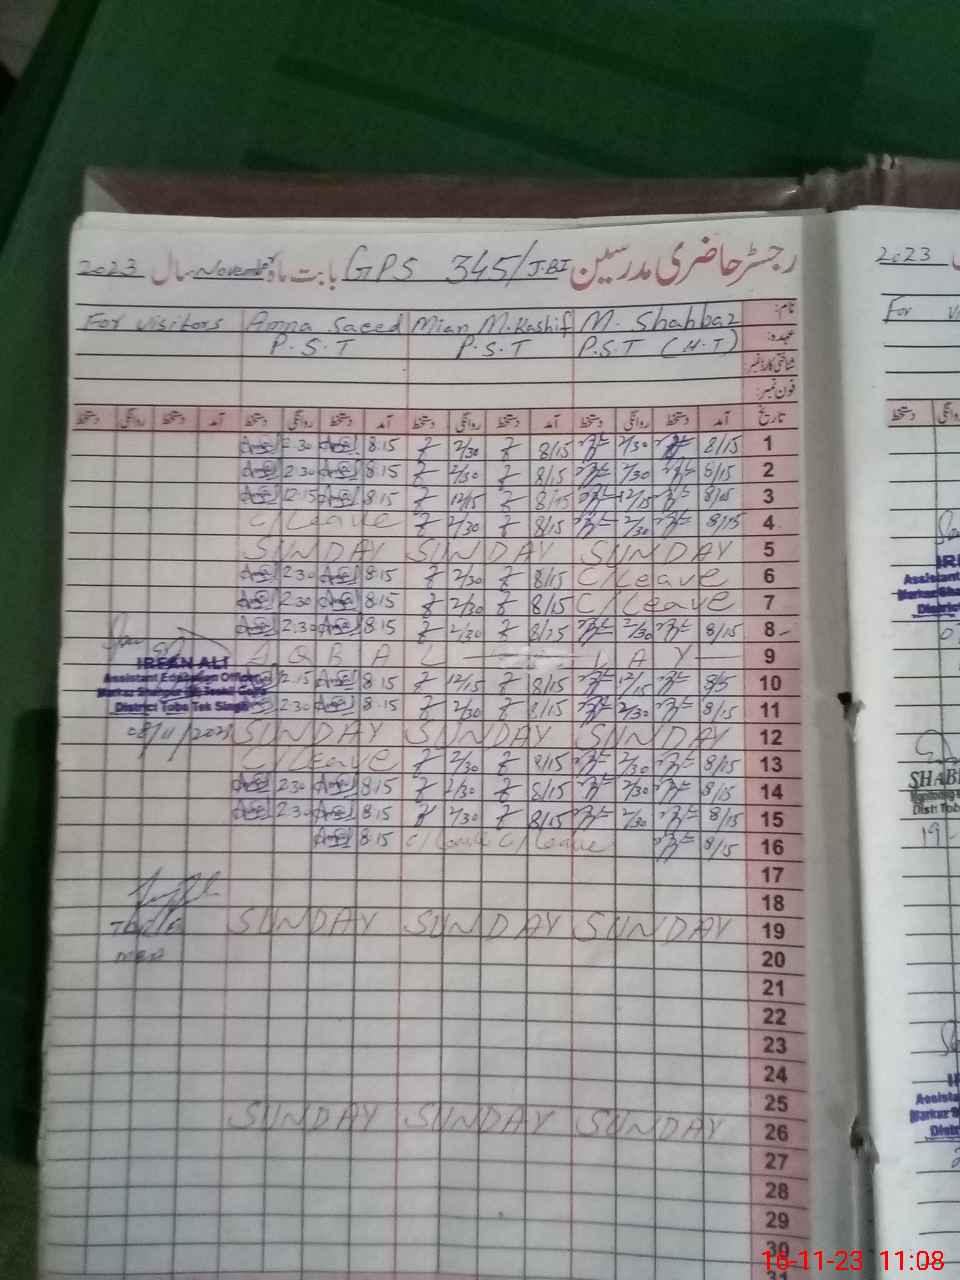 رجسٹر حاضری مدرسین GPS 345/J.BI بابت ماہ November سال 2023
نام: M. Shahbaz Mian M. Kashif Amna Saeed For visitors
عہدہ: P.S.T (H.T) P.S.T P.S.T
شناختی کارڈ نمبر:
فون نمبر:
تاریخ آمد دستخط روانگی دستخط آمد دستخط روانگی دستخط آمد دستخط روانگی دستخط آمد دستخط روانگی دستخط
1 8/15 2/30 8/15 2/30 8:15 2:30
2 8/15 2/30 8/15 2/30 8:15 2:30
3 8/15 12/15 8/15 12/15 8:15 12:15
4 8/15 2/30 8/15 2/30 C/Leave
5 SUNDAY SUNDAY SUNDAY
6 C/Leave 8/15 2/30 8:15 2:30
7 C/Leave 8/15 2/30 8:15 2:30
8 8/15 2/30 8/15 2/30 8:15 2:30
9 AQBAL DAY
10 8/15 12/15 8/15 12/15 8:15 12:15
11 8/15 2/30 8/15 2/30 8:15 2:30
12 SUNDAY SUNDAY SUNDAY
13 8/15 2/30 8/15 2/30 C/Leave
14 8/15 2/30 8/15 2/30 8:15 2:30
15 8/15 2/30 8/15 2/30 8:15 2:30
16 8/15 C/Leave C/Leave 8:15
17
18
19 SUNDAY SUNDAY SUNDAY
20
21
22
23
24
25
26 SUNDAY SUNDAY SUNDAY
27
28
29
30
31
IRFAN ALI
Assistant Education Officer
District Toba Tek Singh
08/11/2023
MEA
2023
For
Assistant
Markaz
District
SHAB
Distt Toba
19-
Assista
Markaz
Distr
16-11-23 11:08